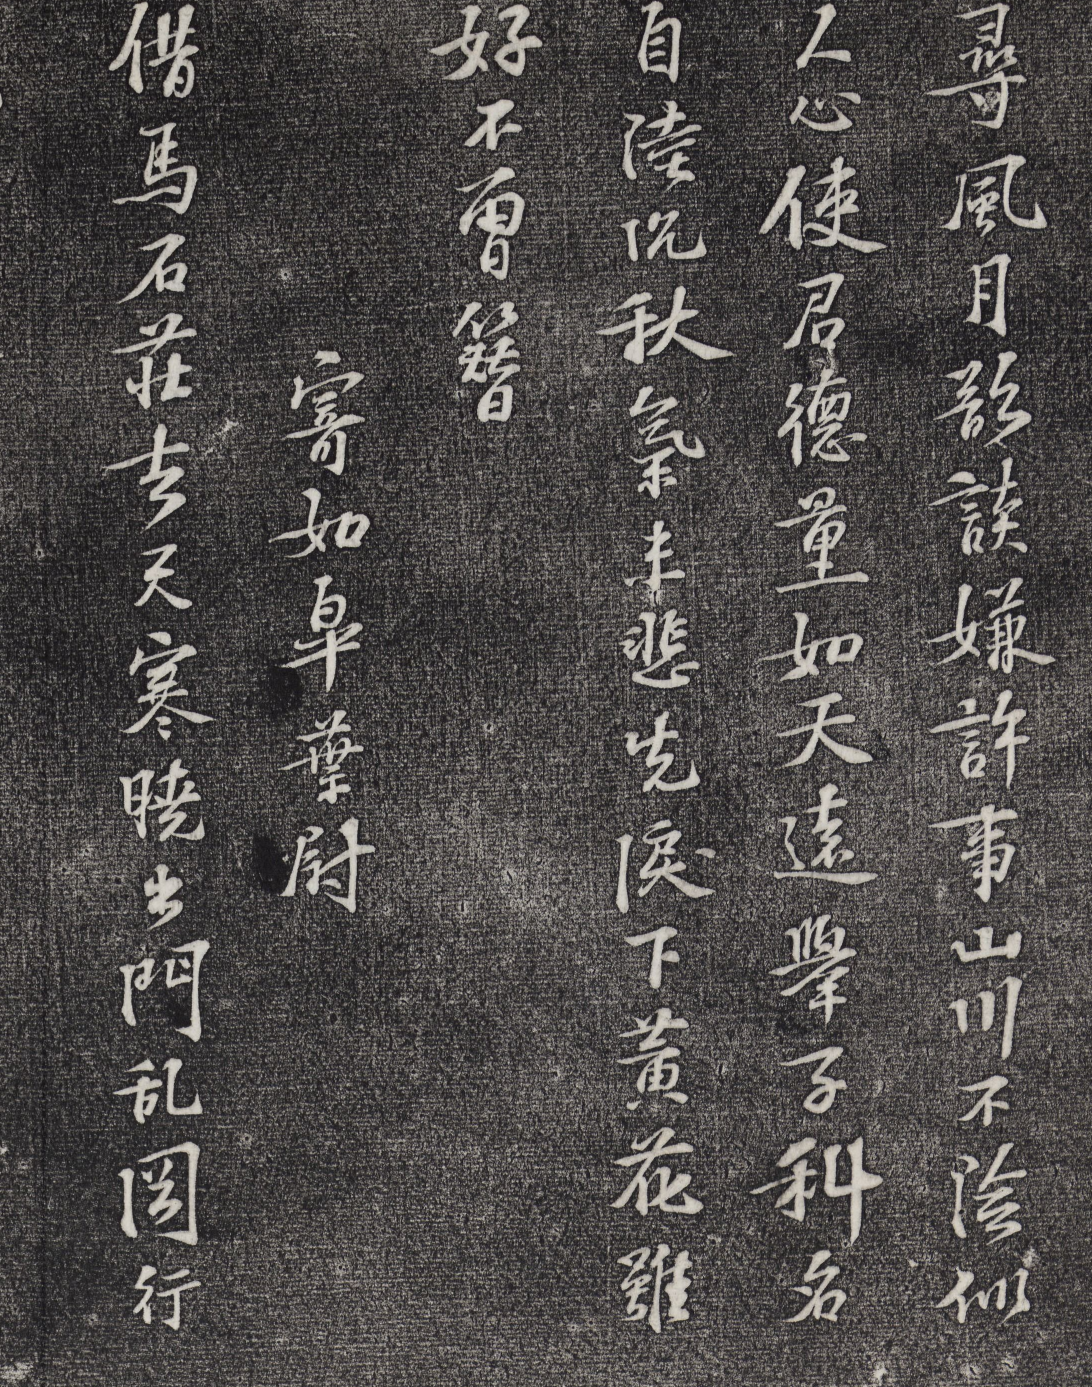 尋風月歆談嫌許事山川不險似
人心使君德量如天遠舉子科名
自陸沉秋氣未悲先淚下黃花雖
好不曾簪
寄如皋葉尉
借馬石莊去天寒曉出門乱岡行